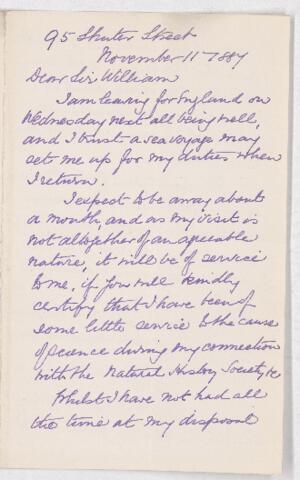 95 Shuter Street
November 11th 1887
Dear Sir William
I am leaving for England on
Wednesday next all being well,
and I trust a sea voyage may
set me up for my duties when
I return.
I expect to be away about
a month, and as my visit is
not altogether of an agreeable
nature, it will be of service
to me, if you will kindly
certify that I have been of
some little service to the cause
of science during my connection
with the Natural History Society &c
Whilst I have not had all
the time at my disposal